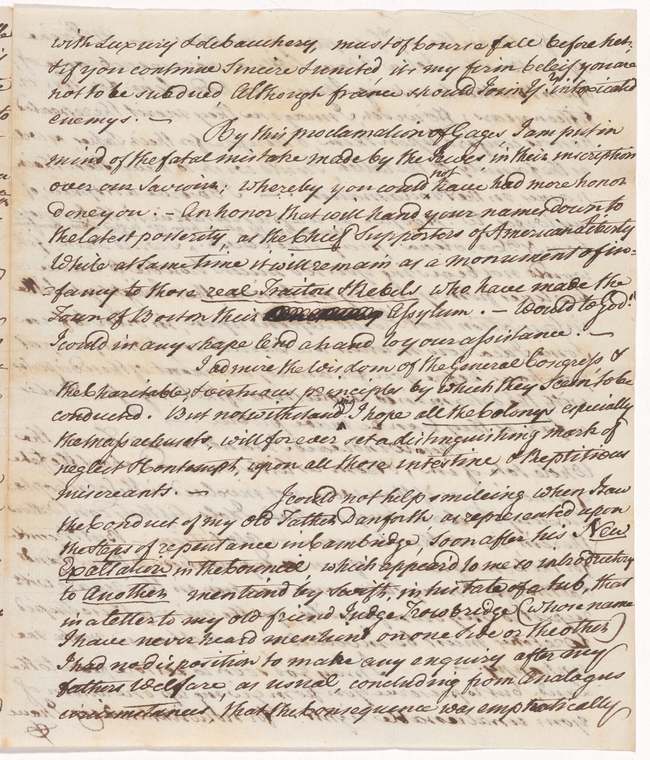 with Luxury & debauchery, must of course fall before her.
& if you continue Sincere & united, it is my firm beleif you are
not to be subdued, Although france should Join yr. intoxicated
enemys. —
By this proclamation of Gages I am put in
mind of the fatal mistake made by the Jewes in their inscription
over our Saviour; whereby you could not have had more honor
done you. — An honor that will hand your names down to
the latest posterity, as the Chief Supporters of American Liberty
While at same time it will remain as a monument of in=
=famy to those real Traitors & Rebels who have made the
Town of Boston their Assylum. — Would to God!
I could in any shape lend a hand to your assistance. —
I admire the Wisdom of the General Congress &
the Charitable & virtuous principles by which they Seem to be
conducted. But notwithstandg. I hope all the Colonys especially
the massachusets, will for ever set a distinguishing mark of
neglect & Contempt, upon all those intestine & Reptitious
miscreants. —
I could not help smileing when I saw
the Conduct of my old Father Danforth as represented upon
the steps of repentance in Cambridge, soon after his New
Exaltation in the Councel, which appear'd to me so introductory
to Another mention'd by Swift, in his tale of a tub, that
in a letter to my old friend Judge Trowbridge (whose name
I have never heard mention'd on one side or the other)
I had no disposition to make any enquiry after my
fathers Welfare, as usual, concluding from Analogus
circumstances, that the Consequence was emphatically